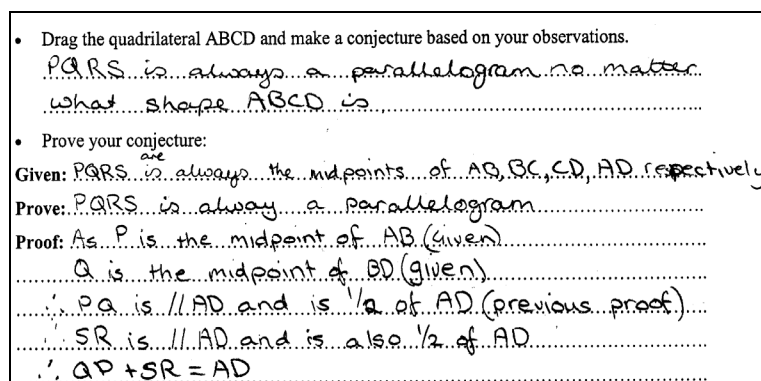 • Drag the quadrilateral ABCD and make a conjecture based on your observations.
PQRS is always a parallelogram no matter
what shape ABCD is
• Prove your conjecture:
are
Given: PQRS is always the midpoints of AB, BC, CD, AD respectively
Prove: PQRS is alway a parallelogram
Proof: As P is the midpoint of AB (Given)
Q is the midpoint of BD (given)
∴ PQ is // AD and is 1/2 of AD (previous proof)
∴ SR is // AD and is also 1/2 of AD
∴ QP + SR = AD